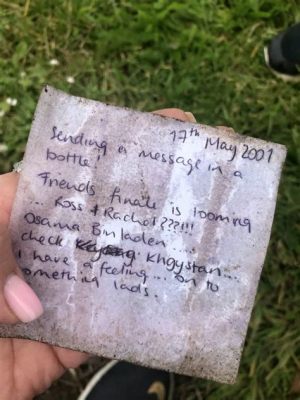 17th May 2001
Sending a message in a
bottle!
Friends finale is looming
... Ross & Rachel???!!!
Osama Bin laden ....
check Khgystan...
I have a feeling ... on to
something lads.